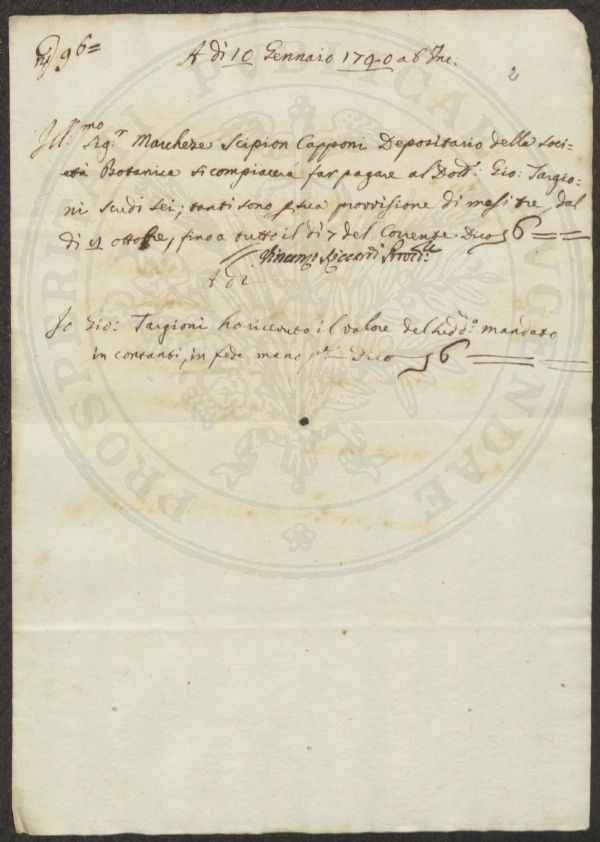 N.º 96=
A dì 10 Gennaio 1740 ab Inc:
2
Ill.mo Sig.r Marchese Scipion Capponi Depositario della Soci=
età Botanica si compiacerà far pagare al Dott: Gio: Targio=
ni Scudi sei; tanti sono p sua provvisione di mesi tre, dal
dì ottobre, fino a tutto il dì 7 del Corrente. Dico 6
Vincenzo Riccardi
A dì
Io Gio: Targioni ho ricevuto il valore del sudd.º mandato
in contanti, in fede mano Dico 6
PROSPERITATI PUBLICAE AUGENDAE